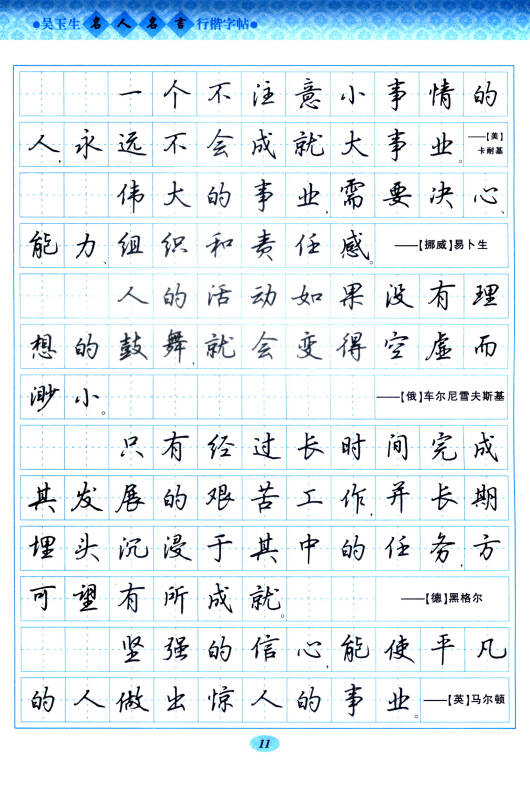 吴玉生 名人名言 行楷字帖
一个不注意小事情的
人,永远不会成就大事业。——【美】卡耐基
伟大的事业,需要决心、
能力、组织和责任感。——【挪威】易卜生
人的活动如果没有理
想的鼓舞,就会变得空虚而
渺小。——【俄】车尔尼雪夫斯基
只有经过长时间完成
其发展的艰苦工作,并长期
埋头沉浸于其中的任务,方
可望有所成就。——【德】黑格尔
坚强的信心,能使平凡
的人做出惊人的事业。——【英】马尔顿
11